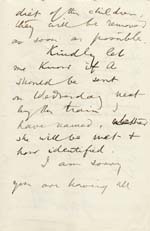 diet of the children,
they will be removed
as soon as possible
Kindly let
me know if A
should be sent
on Wednesday next
by the train I
have named, whether
she will be met &
how identified.
I am sorry
you are having all